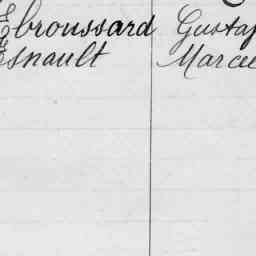 broussard Gustaf
snault Marce